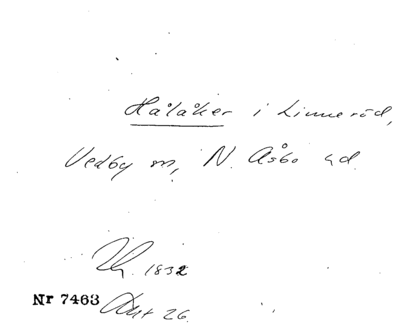 Hålåker i Linneröd,
Vedby sn, N. Åsbo hd.
1832
Nr 7463 Akt 26.